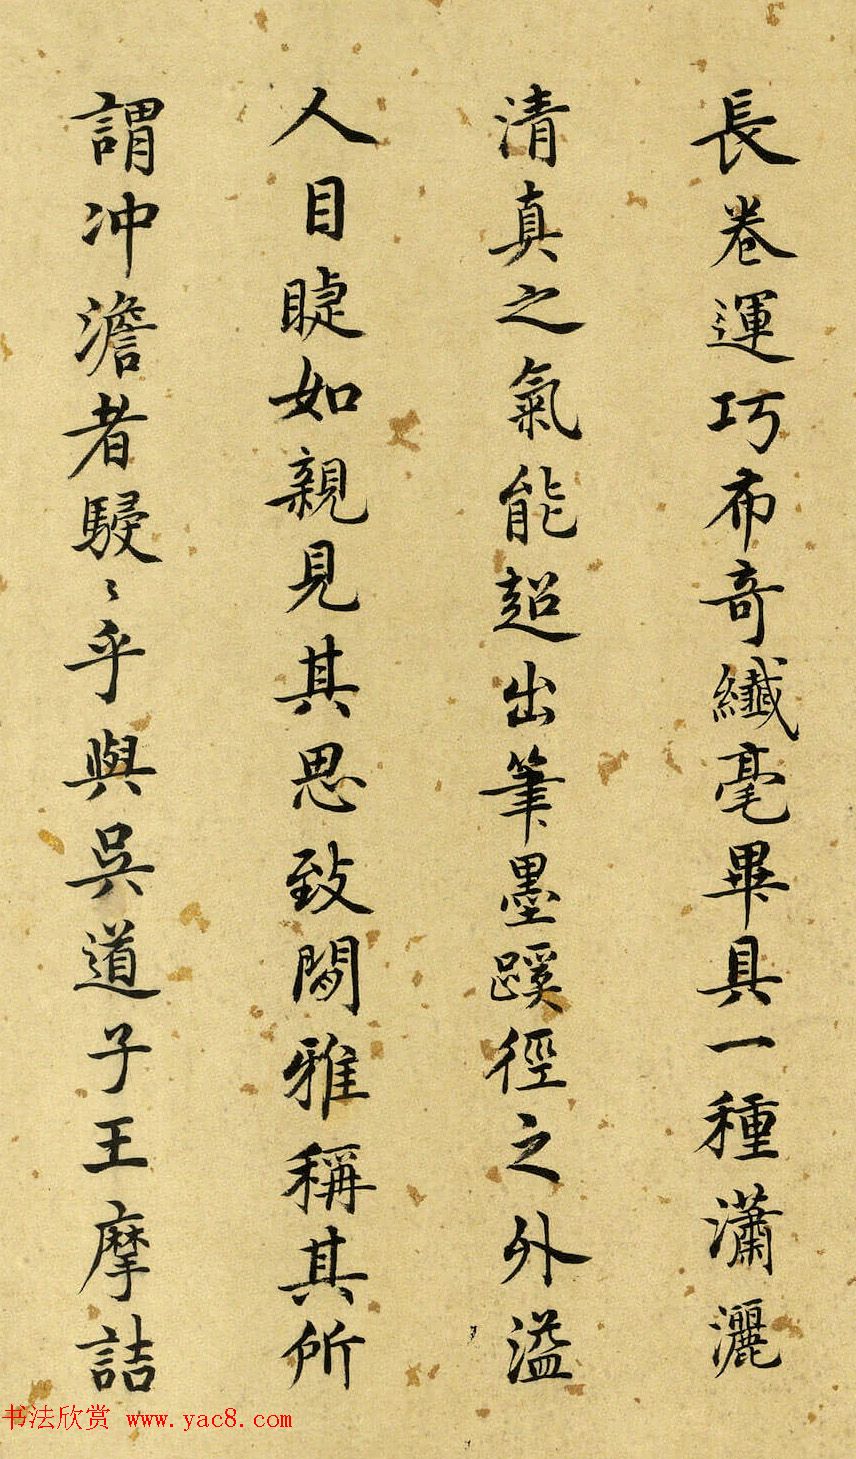 長卷運巧布奇纖毫畢具一種瀟灑
清真之氣能超出筆墨蹊徑之外溢
人目睫如親見其思致閒雅稱其所
謂冲澹者駸〻乎與吳道子王摩詰
书法欣赏 www.yac8.com